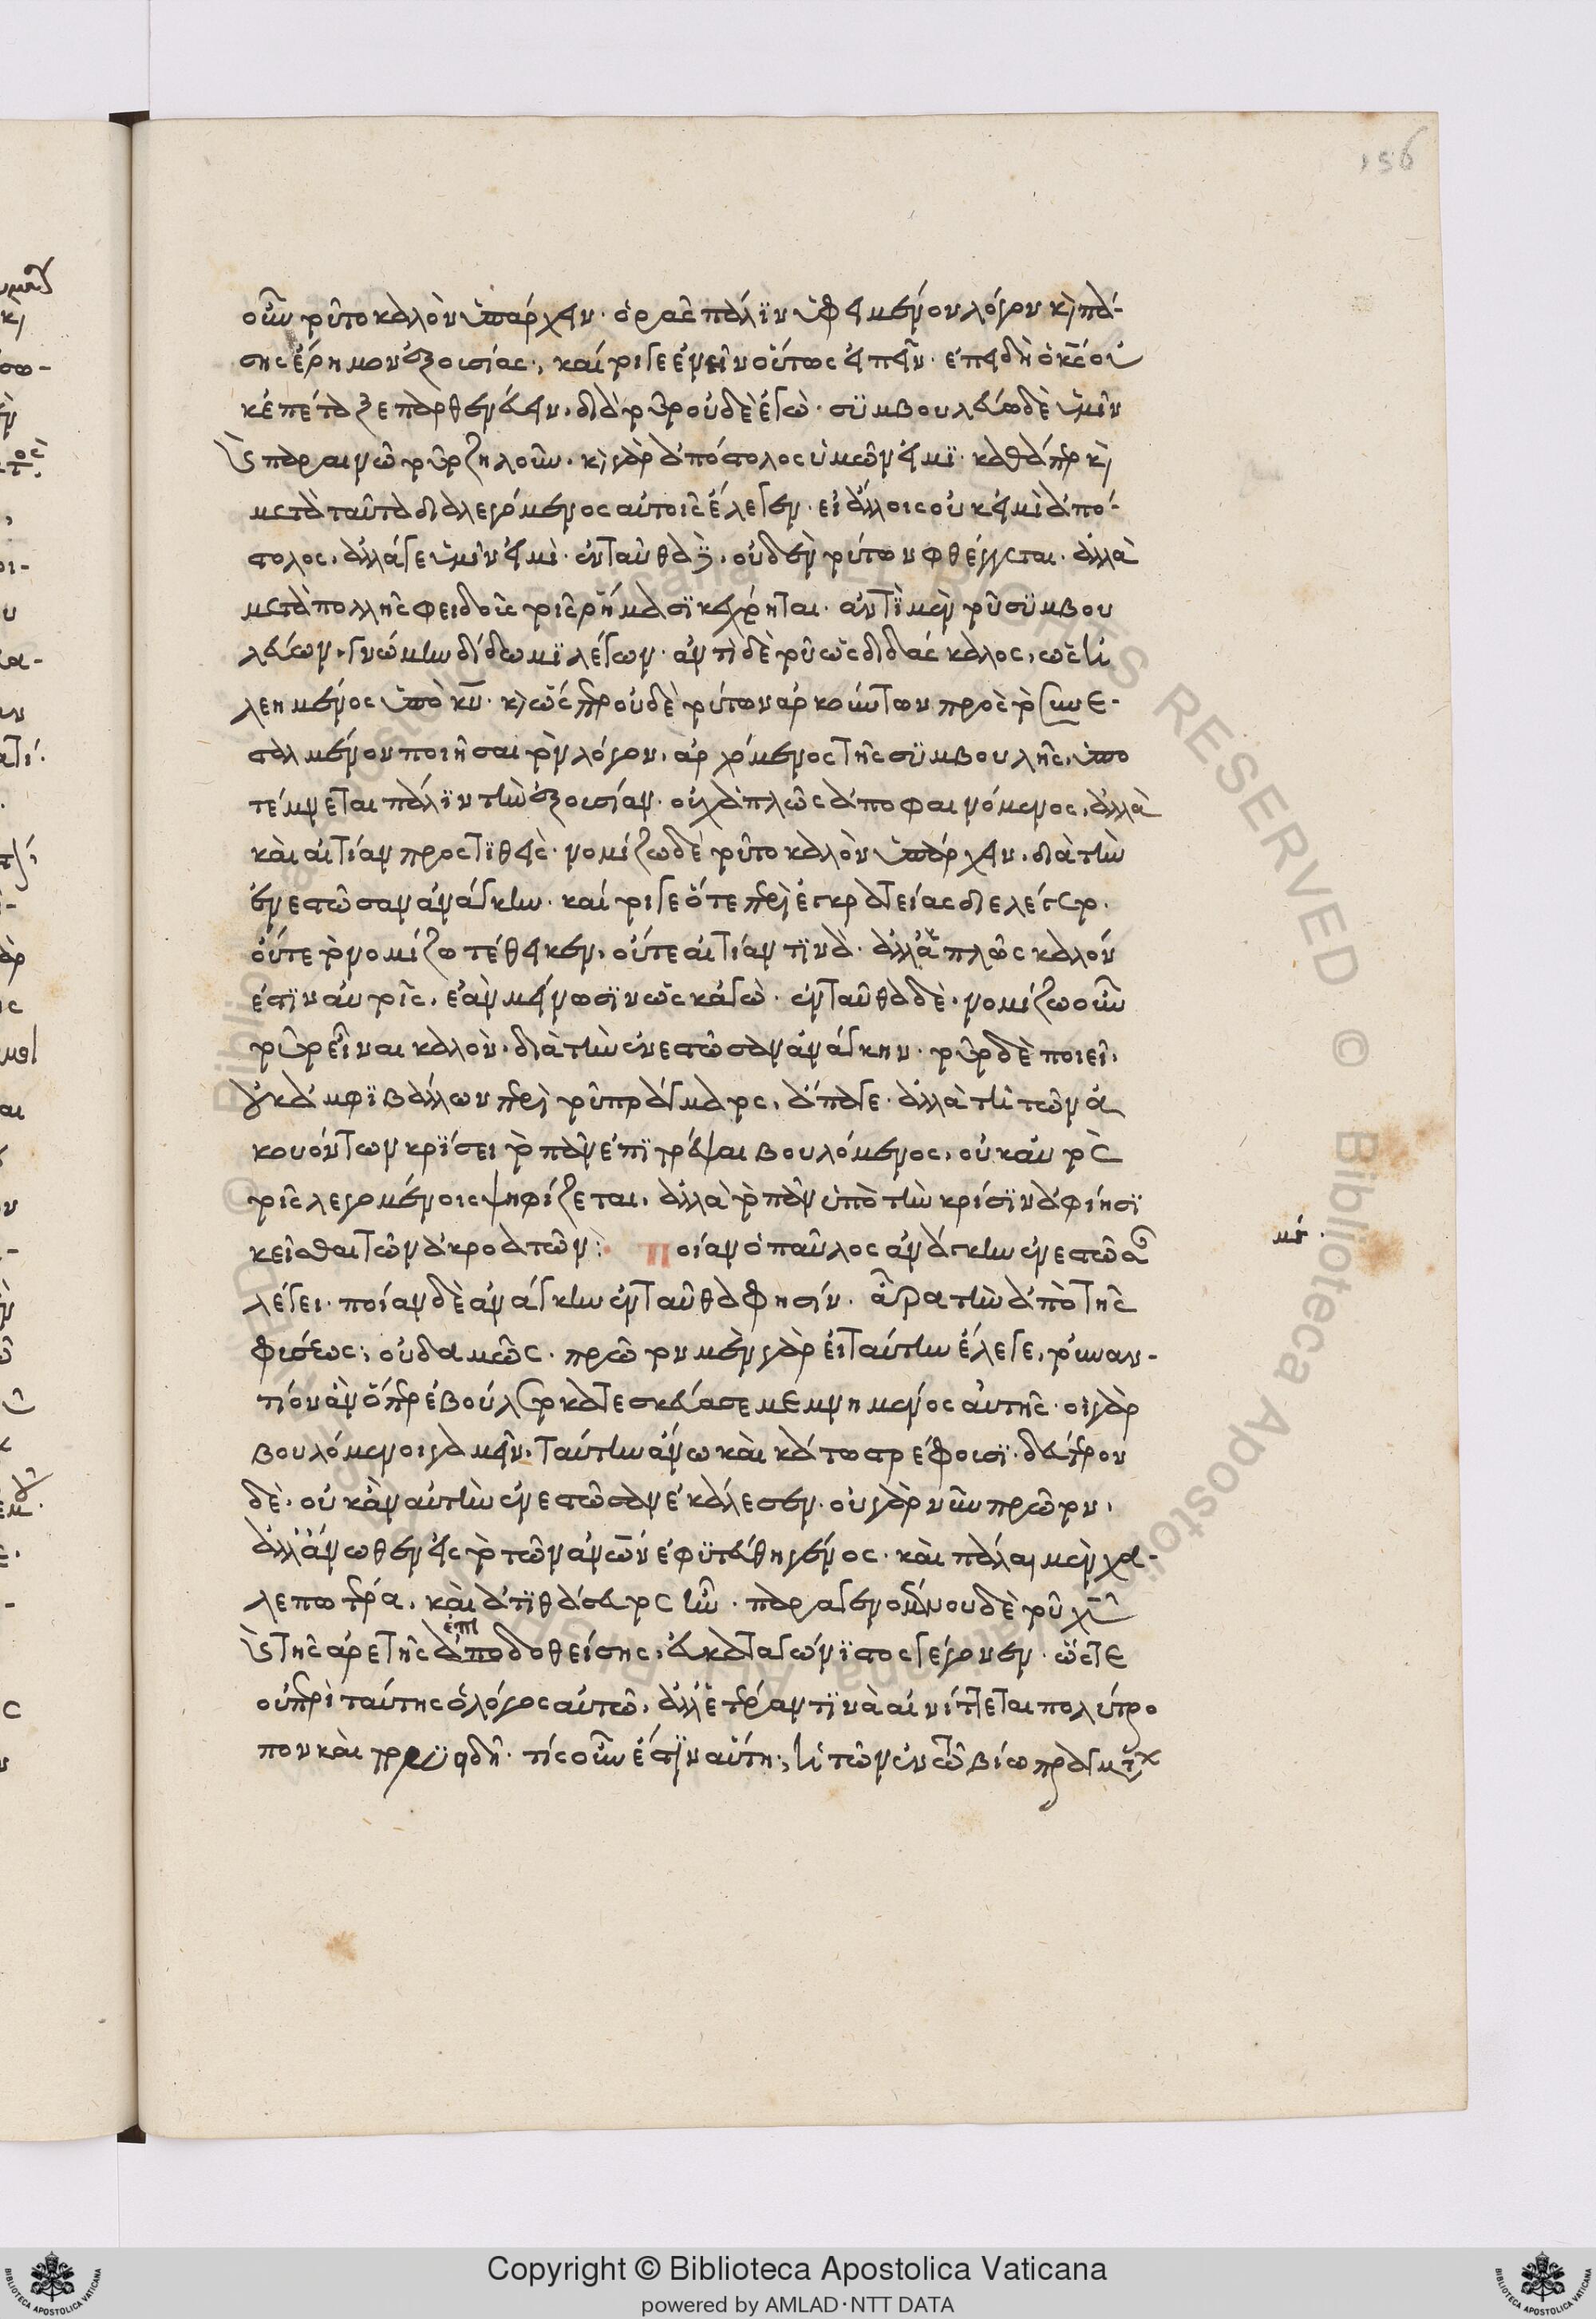 οὖν τοῦτο καλὸν ὑπάρχειν· ὁρᾶς πάλϊν ὑφειμένον λόγον κ(αὶ) πά-
σης ἔρημον ἐξουσίας, καίτοιγε ἐνῆν οὕτως εἰπεῖν· ἐπειδὴ ὁ κς οὐ
κ ἐπέταξε παρθενεύειν, διὰ τοῦτο οὐδὲ ἐγὼ· συμβουλεύω δὲ ὑμῖν
κ(αὶ) παραινῶ τοῦτο ζηλοῦν· κ(αὶ) γὰρ ἀπόστολος ὑμῶν εἰμϊ· καθάπερ κ(αὶ)
μετὰ ταῦτα διαλεγόμενος αὐτοῖς ἔλεγεν· εἰ ἄλλοις οὐκ εἰμὶ ἀπό-
στολος, ἀλλάγε ὑμῖν εἰμὶ· ἐνταῦθα δὲ, οὐδὲν τούτων φθέγγεται· ἀλλὰ
μετὰ πολλῆς φειδοῦς τοῖς ῥήμασϊ κέχρηται· ἀντϊ μὲν τοῦ συμβου
λεύων, γνώμην δίδωμϊ λέγων· ἀντὶ δὲ τοῦ ὡς διδάσκαλος, ὡς ἠ
λεημένος ὑπὸ κυ· κ(αὶ) ὥσπερ οὐδὲ τούτων ἀρκούντων πρὸς τὸ συνε-
σταλμένον ποιῆσαι τὸν λόγον, ἀρχόμενος τῆς συμβουλῆς, ὑπο
τέμνεται πάλϊν τὴν ἐξουσίαν· οὐχ ἁπλῶς ἀποφαινόμενος, ἀλλὰ
καὶ αἰτίαν προστϊθεὶς· νομίζω δὲ τοῦτο καλὸν ὑπάρχειν, διὰ τὴν
ἐνεστῶσαν ἀνάγκην· καίτοιγε ὅτε περὶ ἐγκρατείας διελέγετο,
οὔτε τὸ νομίζω τέθεικεν, οὔτε αἰτίαν τϊνὰ· ἀλλ' ἁπλῶς καλὸν
ἐστϊν αὐτοῖς, ἐὰν μείνωσϊν ὡς κἀγὼ· ἐνταῦθα δὲ, νομίζω οὖν
τοῦτο εἶναι καλὸν, διὰ τὴν ἐνεστῶσαν ἀνάγκην· τοῦτο δὲ ποιεῖ,
οὐκ ἀμφϊβάλλων περὶ τοῦ πράγματος, ἄπαγε· ἀλλὰ τῆ τῶν ἀ
κουόντων κρϊσει τὸ πᾶν ἐπϊτρέψαι βουλόμενος, οὐκ αὐτὸς
τοῖς λεγομένοις ψηφίζεται, ἀλλὰ τὸ πᾶν ὑπὸ τὴν κρίσϊν ἀφίησϊ
κεῖσθαι τῶν ἀκροατῶν: Ποίαν ὁ παῦλος ἀνάγκην ἐνεστῶσαν μγ.
λέγει· ποίαν δὲ ἀνάγκην ἐνταῦθα φησίν· ἆρα τὴν ἀπὸ τῆς
φύσεως; οὐδαμῶς· πρῶτον μὲν γὰρ εἰ ταύτην ἔλεγε, τοὐναν-
τίον ἂν ὅπερ ἐβούλετο κατεσκεύασε μεμνημένος αὐτῆς· οἱ γὰρ
βουλόμενοι γαμεῖν, ταύτην ἄνω καὶ κάτω στρέφουσϊ· δεύτερον
δὲ, οὐκ ἂν αὐτὴν ἐνεστῶσαν ἐκάλεσεν· οὐ γὰρ νῦν πρῶτον,
ἀλλ' ἄνωθεν εἰς τὸ τῶν ἀνων ἐφϋτεύθη γένος· καὶ πάλαι μὲν χα-
λεπωτέρα, καὶ ἀτϊθάσευτος ἦν· παραγενομένου δὲ τοῦ χυ
κ(αὶ) τῆς ἀρετῆς ἐπιδοθείσης, εὐκαταγώνϊστος γέγονεν· ὥστε
οὐ περὶ ταύτης ὁ λόγος αὐτῶ, ἀλλ' ἑτέραν τϊνὰ αἰνίττεται πολύτρο
πον καὶ πολυειδῆ· τίς οὖν ἐστϊν αὕτη; ἡ τῶν ἐν τῶ βίω πραγμάτων